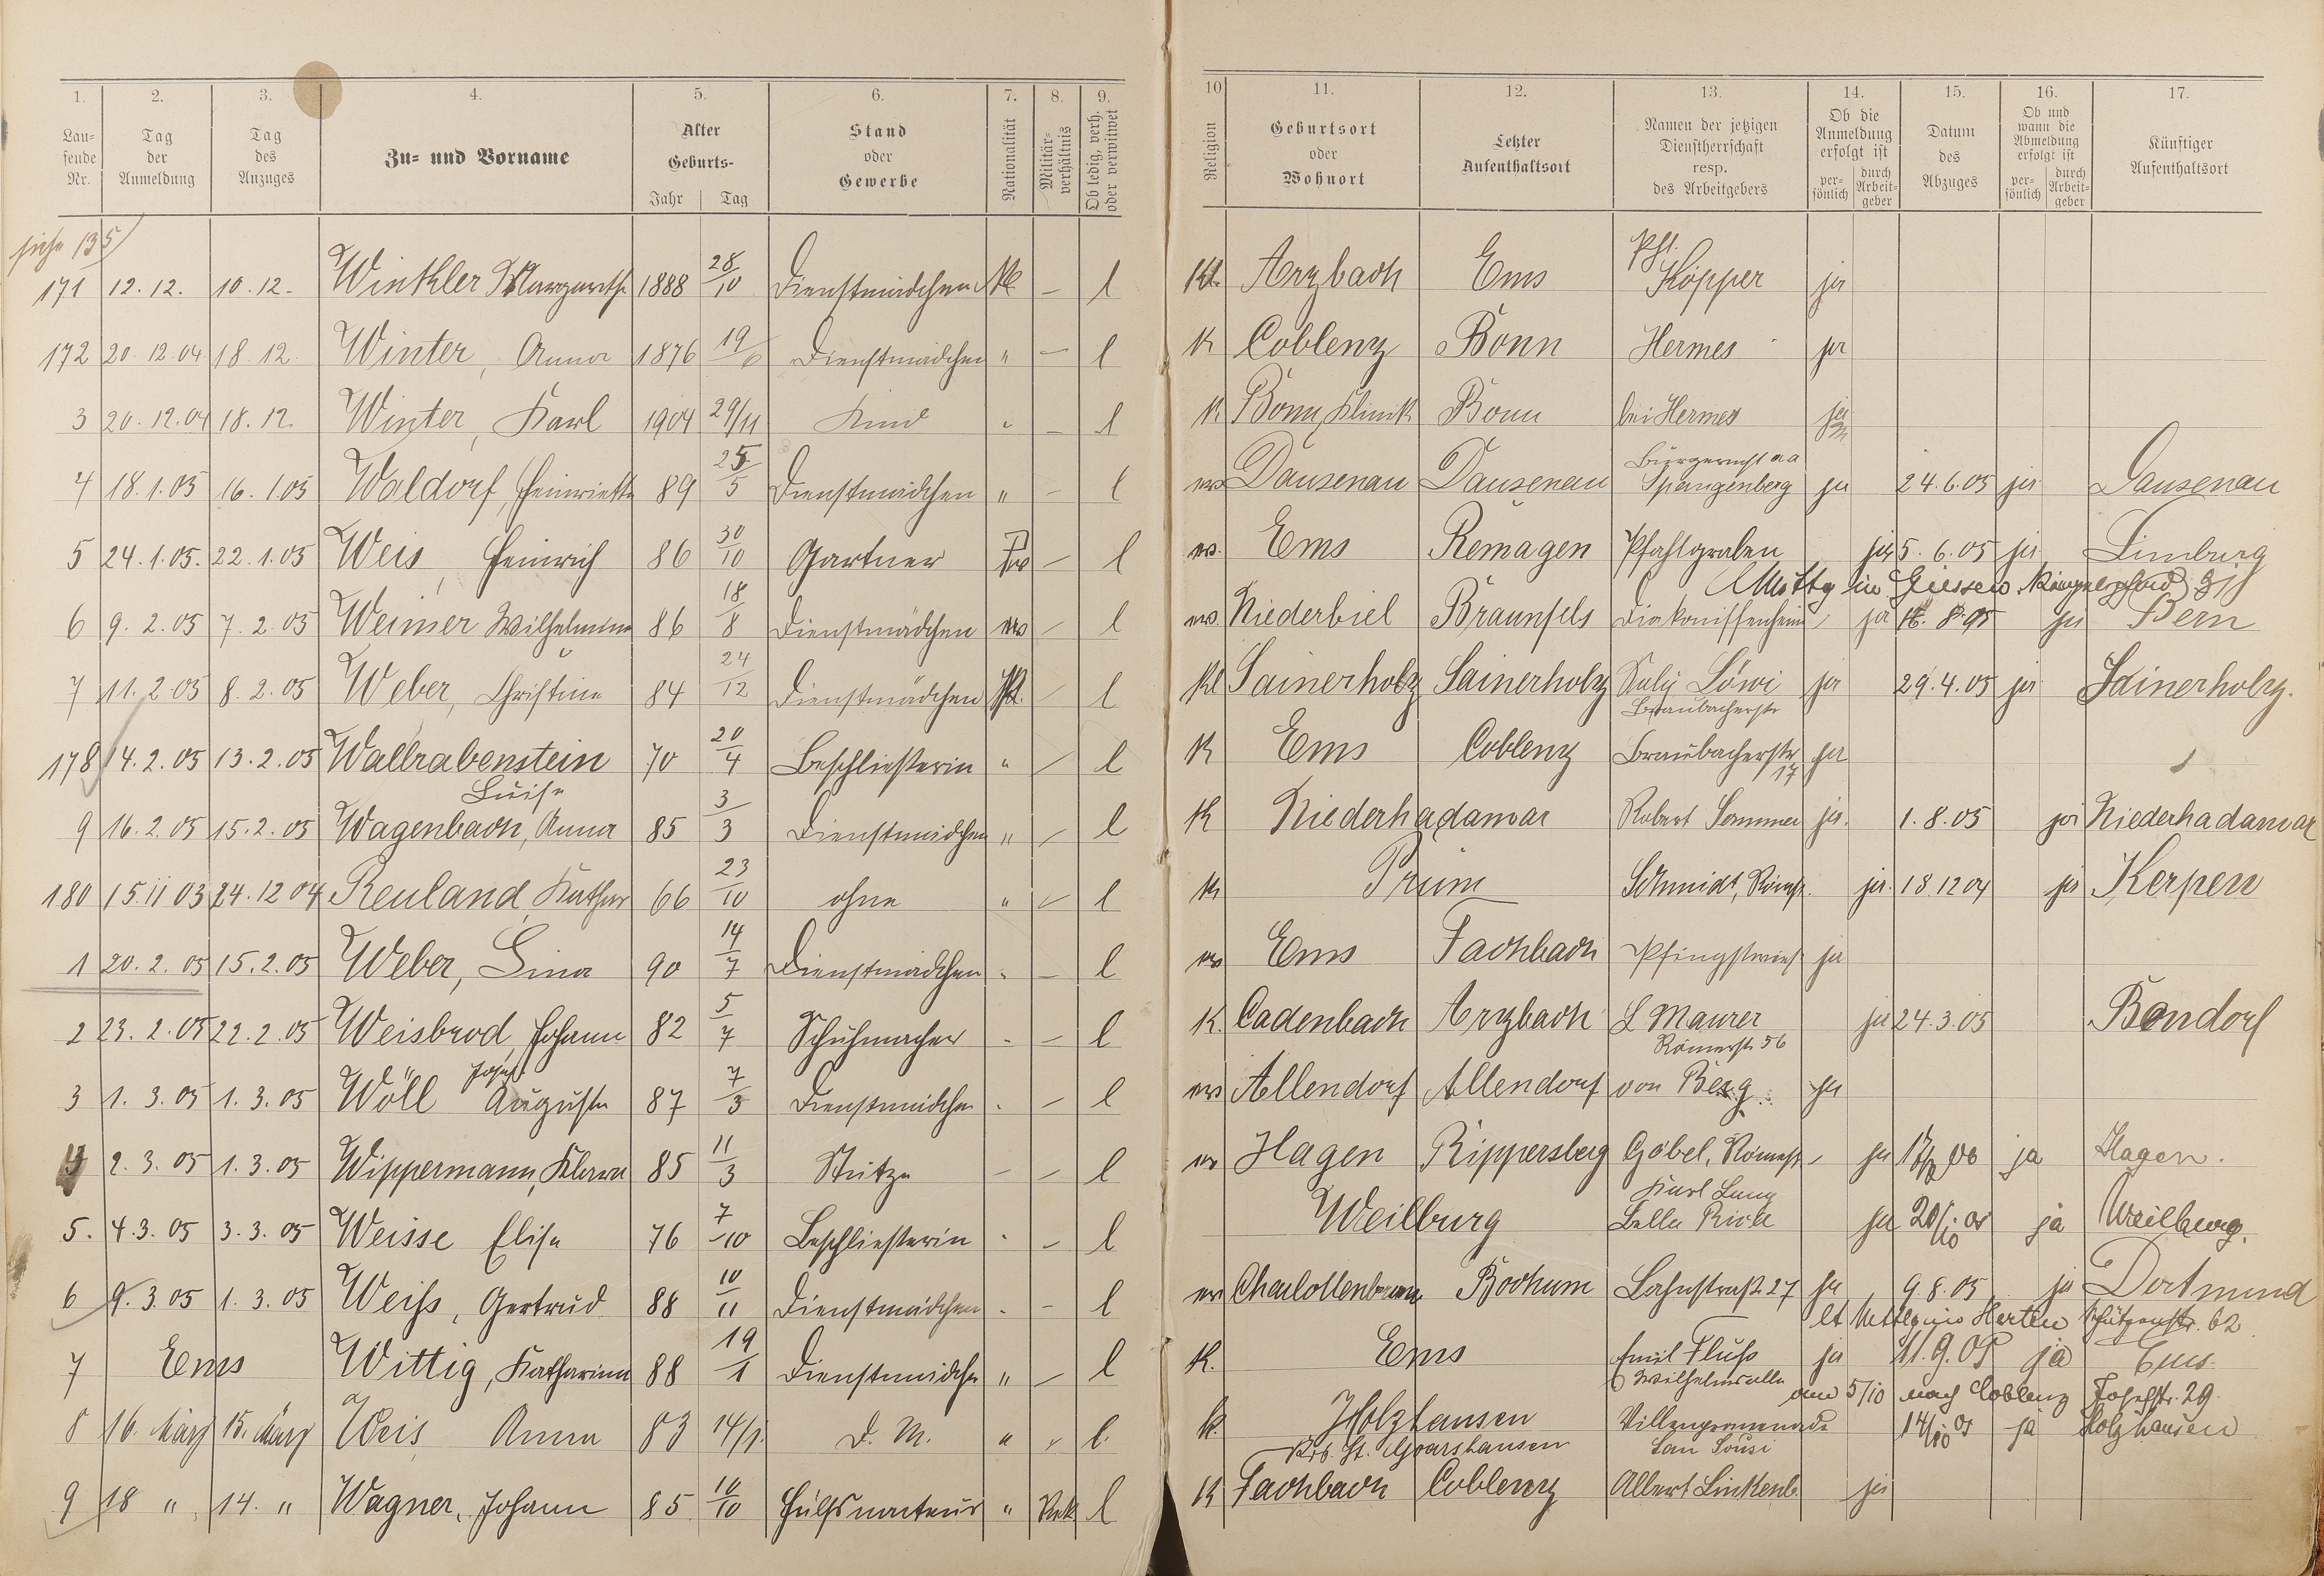 1. 2. 3. 4. 5. 6. 7. 8. 9. 10 11. 12. 13. 14. 15. 16. 17.
Lau-
fende
Nr.
Tag
der
Anmeldung
Tag
des
Anzuges
Zu- und Vorname
Alter
Geburts-
Jahr Tag
Stand
oder
Gewerbe
Nationalität
Militär-
verhältnis
Ob ledig, verh.
oder verwitwet
Religion
Geburtsort
oder
Wohnort
Letzter
Aufenthaltsort
Namen der jetzigen
Dienstherrschaft
resp.
des Arbeitgebers
Ob die
Anmeldung
erfolgt ist
per-
sönlich
durch
Arbeit-
geber
Datum
des
Abzuges
Ob und
wann die
Abmeldung
erfolgt ist
per-
sönlich
durch
Arbeit-
geber
Künftiger
Aufenthaltsort
siehe 135
171 12. 12. 10. 12. Winkler Margarethe 1888 28/10 Dienstmädchen — l Arzbach Ems Köpper ja
172 20. 12. 04 18. 12. Winter, Anna 1876 19/6 Dienstmädchen " — l K Coblenz Bonn Hermes ja
3 20. 12. 04 18. 12. Winter, Karl 1904 29/11 Kind " — l K Bonn, Klinik Bonn bei Hermes ja
4 18. 1. 05 16. 1. 05 Waldorf, Henriette 89 25/5 Dienstmädchen " — l ev Dausenau Dausenau Spangenberg ja 24. 6. 05 ja Dausenau
5 24. 1. 05. 22. 1. 05 Weis, Heinrich 86 30/10 Gartner Pr — l ev. Ems Remagen Pfahlgraben ja 5. 6. 05 ja Limburg
in Giessen
6 9. 2. 05 7. 2. 05 Weimer Wilhelmine 86 18/8 Dienstmädchen — l ev. Niederbiel Braunfels Diakonissenheim ja ja Bern
7 11. 2. 05 8. 2. 05 Weber, Christine 84 24/12 Dienstmädchen — l Sainerholz Sainerholz Löwi ja 29. 4. 05 ja Sainerholz.
Braubacherstr
178 14. 2. 05 13. 2. 05 Wallrabenstein 70 20/4 Beschließerin " — l K Ems Coblenz Braubacherstr 17 ja
Luise
9 16. 2. 05 15. 2. 05 Wagenbach, Anna 85 3/3 Dienstmädchen " — l K Niederhadamar Robert Sommer ja. 1. 8. 05 ja Niederhadamar
180 15. 11 03 24. 12 04 Reuland, Kathar 66 23/10 ohne " — l K Prüm Schmidt, Römerstr. ja. 18. 12 04 ja Kerpen
1 20. 2. 05 15. 2. 05 Weber, Lina 90 14/7 Dienstmädchen " — l ev Ems Fachbach Pfingstwiese ja
2 23. 2. 05 22. 2. 05 Weisbrod, Johann 82 5/7 Schuhmacher " — l K. Cadenbach Arzbach L Maurer ja 24. 3. 05 Bendorf
Josef Römerstr 56
3 1. 3. 05 1. 3. 05 Wöll Auguste 87 7/3 Dienstmädchen " — l ev Allendorf Allendorf von Berg ja
4 2. 3. 05 1. 3. 05 Wippermann, Klara 85 11/3 Stütze — — l ev Hagen Rippersberg Göbel, Römerstr ja ja Hagen.
Karl Lang
5. 4. 3. 05 3. 3. 05 Weisse Elise 76 7/10 Beschließerin " — l Weilburg Bella Riva ja 20/10 05 ja Weilburg.
6 9. 3. 05 1. 3. 05 Weiß, Gertrud 88 10/11 Dienstmädchen " — l ev Charlottenbrunn Bochum Lahnstraße 27 ja 9. 8. 05 ja Dortmund
lt Herten Schützenstr. 62
7 Ems Wittig, Katharina 88 19/1 Dienstmädchen " — l K. Ems Emil Fluß ja 11. 9. 05 ja Ems.
Wilhelmsallee am 5/10 nach Coblenz Josefstr. 29.
8 16. März 15. März Weis Anna 83 14/1. D. M. " " l. K. Holzhausen Villenpromenade 14/10 05 ja Holzhausen
Krs. St. Goarshausen San Sousi
9 18 " 14. " Wagner, Johann 85 10/10 Hülfsmonteur " l K Fachbach Coblenz Albert Linkenb. ja